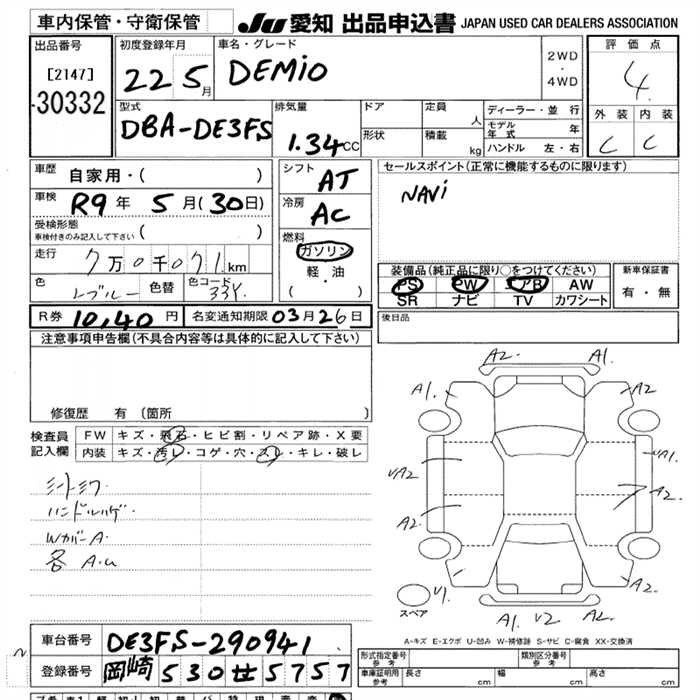 車内保管・守衛保管 JU 愛知 出品申込書 JAPAN USED CAR DEALERS ASSOCIATION
出品番号
[2147]
30332
初度登録年月
22 5月
車名・グレード
DEMiO
2WD
・
4WD
評価点
4
外装 内装
C C
型式
DBA-DE3FS
排気量
1.34CC
ドア
形状
定員
人
積載
kg
ディーラー・並行
モデル年式 年
ハンドル 左・右
車歴 自家用・( )
車検 R9年 5月(30日)
受検形態
車検付きのみ記入して下さい ( )
走行 7万0千071km
色 レブルー 色替 色コード 33Y
シフト
AT
冷房
AC
燃料
ガソリン
軽・油
・
( )
セールスポイント(正常に機能するものに限ります)
NAVi
装備品(純正品に限り○をつけてください)
PS PW エアB AW
SR ナビ TV カワシート
新車保証書
有・無
R券 10,40円 名変通知期限 03月26日
後日品
注意事項申告欄(不具合内容等は具体的に記入して下さい)
修復歴 有 〔箇所 〕
検査員記入欄
FW キズ・飛石・ヒビ割・リペア跡・X要
内装 キズ・汚レ・コゲ・穴・スレ・キレ・破レ
シートシワ
ハンドルハゲ
Wカバー A
各 A.U
A2 A1
A1 A2
VA2 VA1
A2 A2
V1 A2
A1 V2 A2
スペア
A-キズ E-エクボ U-凹み W-補修跡 S-サビ C-腐食 XX-交換済
車台番号 DE3FS-290941
登録番号 岡崎 530 せ 5757
形式指定番号
参考
類別区分番号
参考
車庫証明用
参考
長さ cm 幅 cm 高さ cm